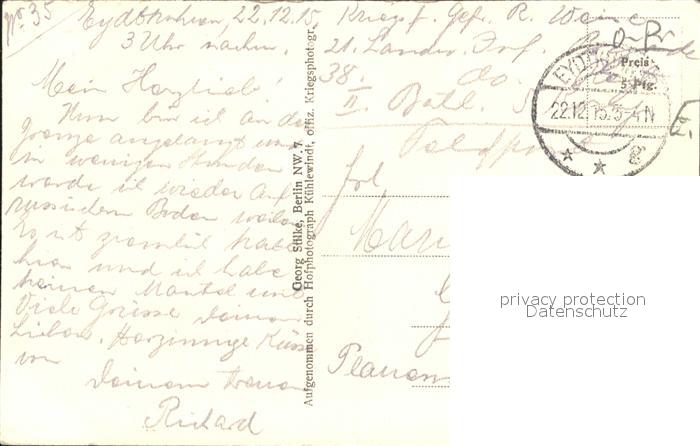 Nr. 35
Eydtkuhnen, 22.12.15.
3 Uhr nachm.
Mein Herzlieb!
Nun bin ich an der
Grenze angelangt und
in wenigen Stunden
werde ich wieder auf
russischem Boden weilen
Es ist ziemlich kalt
hier und ich habe
keinen Mantel und
Viele Grüsse Deinen
Lieben. Herzinnige Küsse
von
Deinem treuen
Richard
Georg Stilke, Berlin NW. 7.
Aufgenommen durch Hofphotograph Kühlewindt, offiz. Kriegsphotogr.
Kriegsf. Gefr. R.
21. Landw. Inf.
38. do.
II. Batl.
Feldpost
Preis
5 Pfg.
22.12.15.3-4N
Frl.
Plauen
privacy protection
Datenschutz